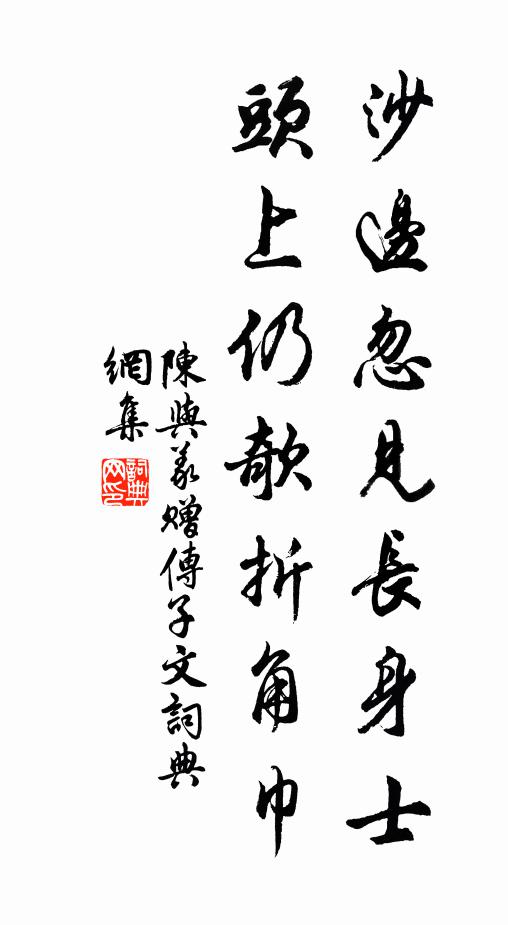 沙邊忽見長身士
頭上仍欹折角巾
陳與義贈傅子文詞典
網集
詞典網印